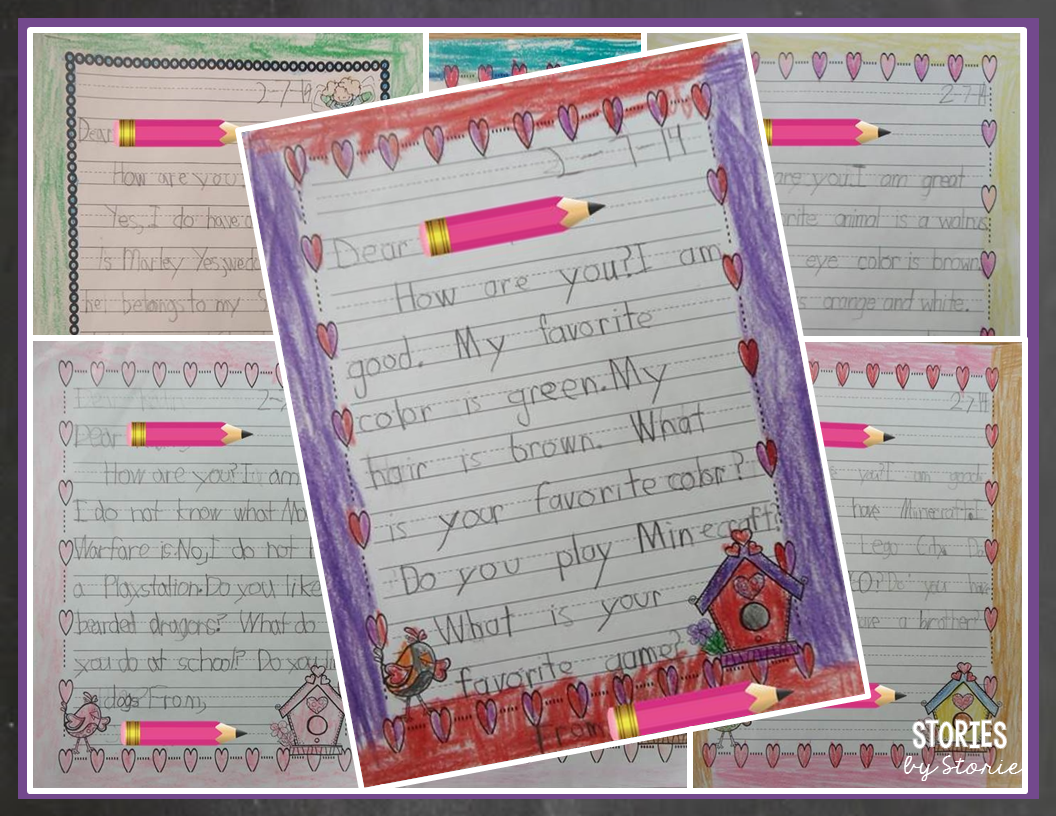 2-7-14
Dear
How are you?
Yes, I do have a
is Marley Yes,
he belongs to my
2-7-14
Dear
How are you?I am
good. My favorite
color is green.My
hair is brown. What
is your favorite color?
Do you play Minecraft?
What is your
favorite game?
From
2-7-14
are you.I am great
animal is a walrus
eye color is brown.
is orange and white.
Dear
How are you?I am
I do not know what
Warfare is.No,I do not
a Playstation.Do you like
bearded dragons? What do
you do at school? Do you
dogs?From,
2-7-14
you?I am good.
have Minecraft.I
Lego City. Do
Do you have
have a brother?
STORIES
by Storie